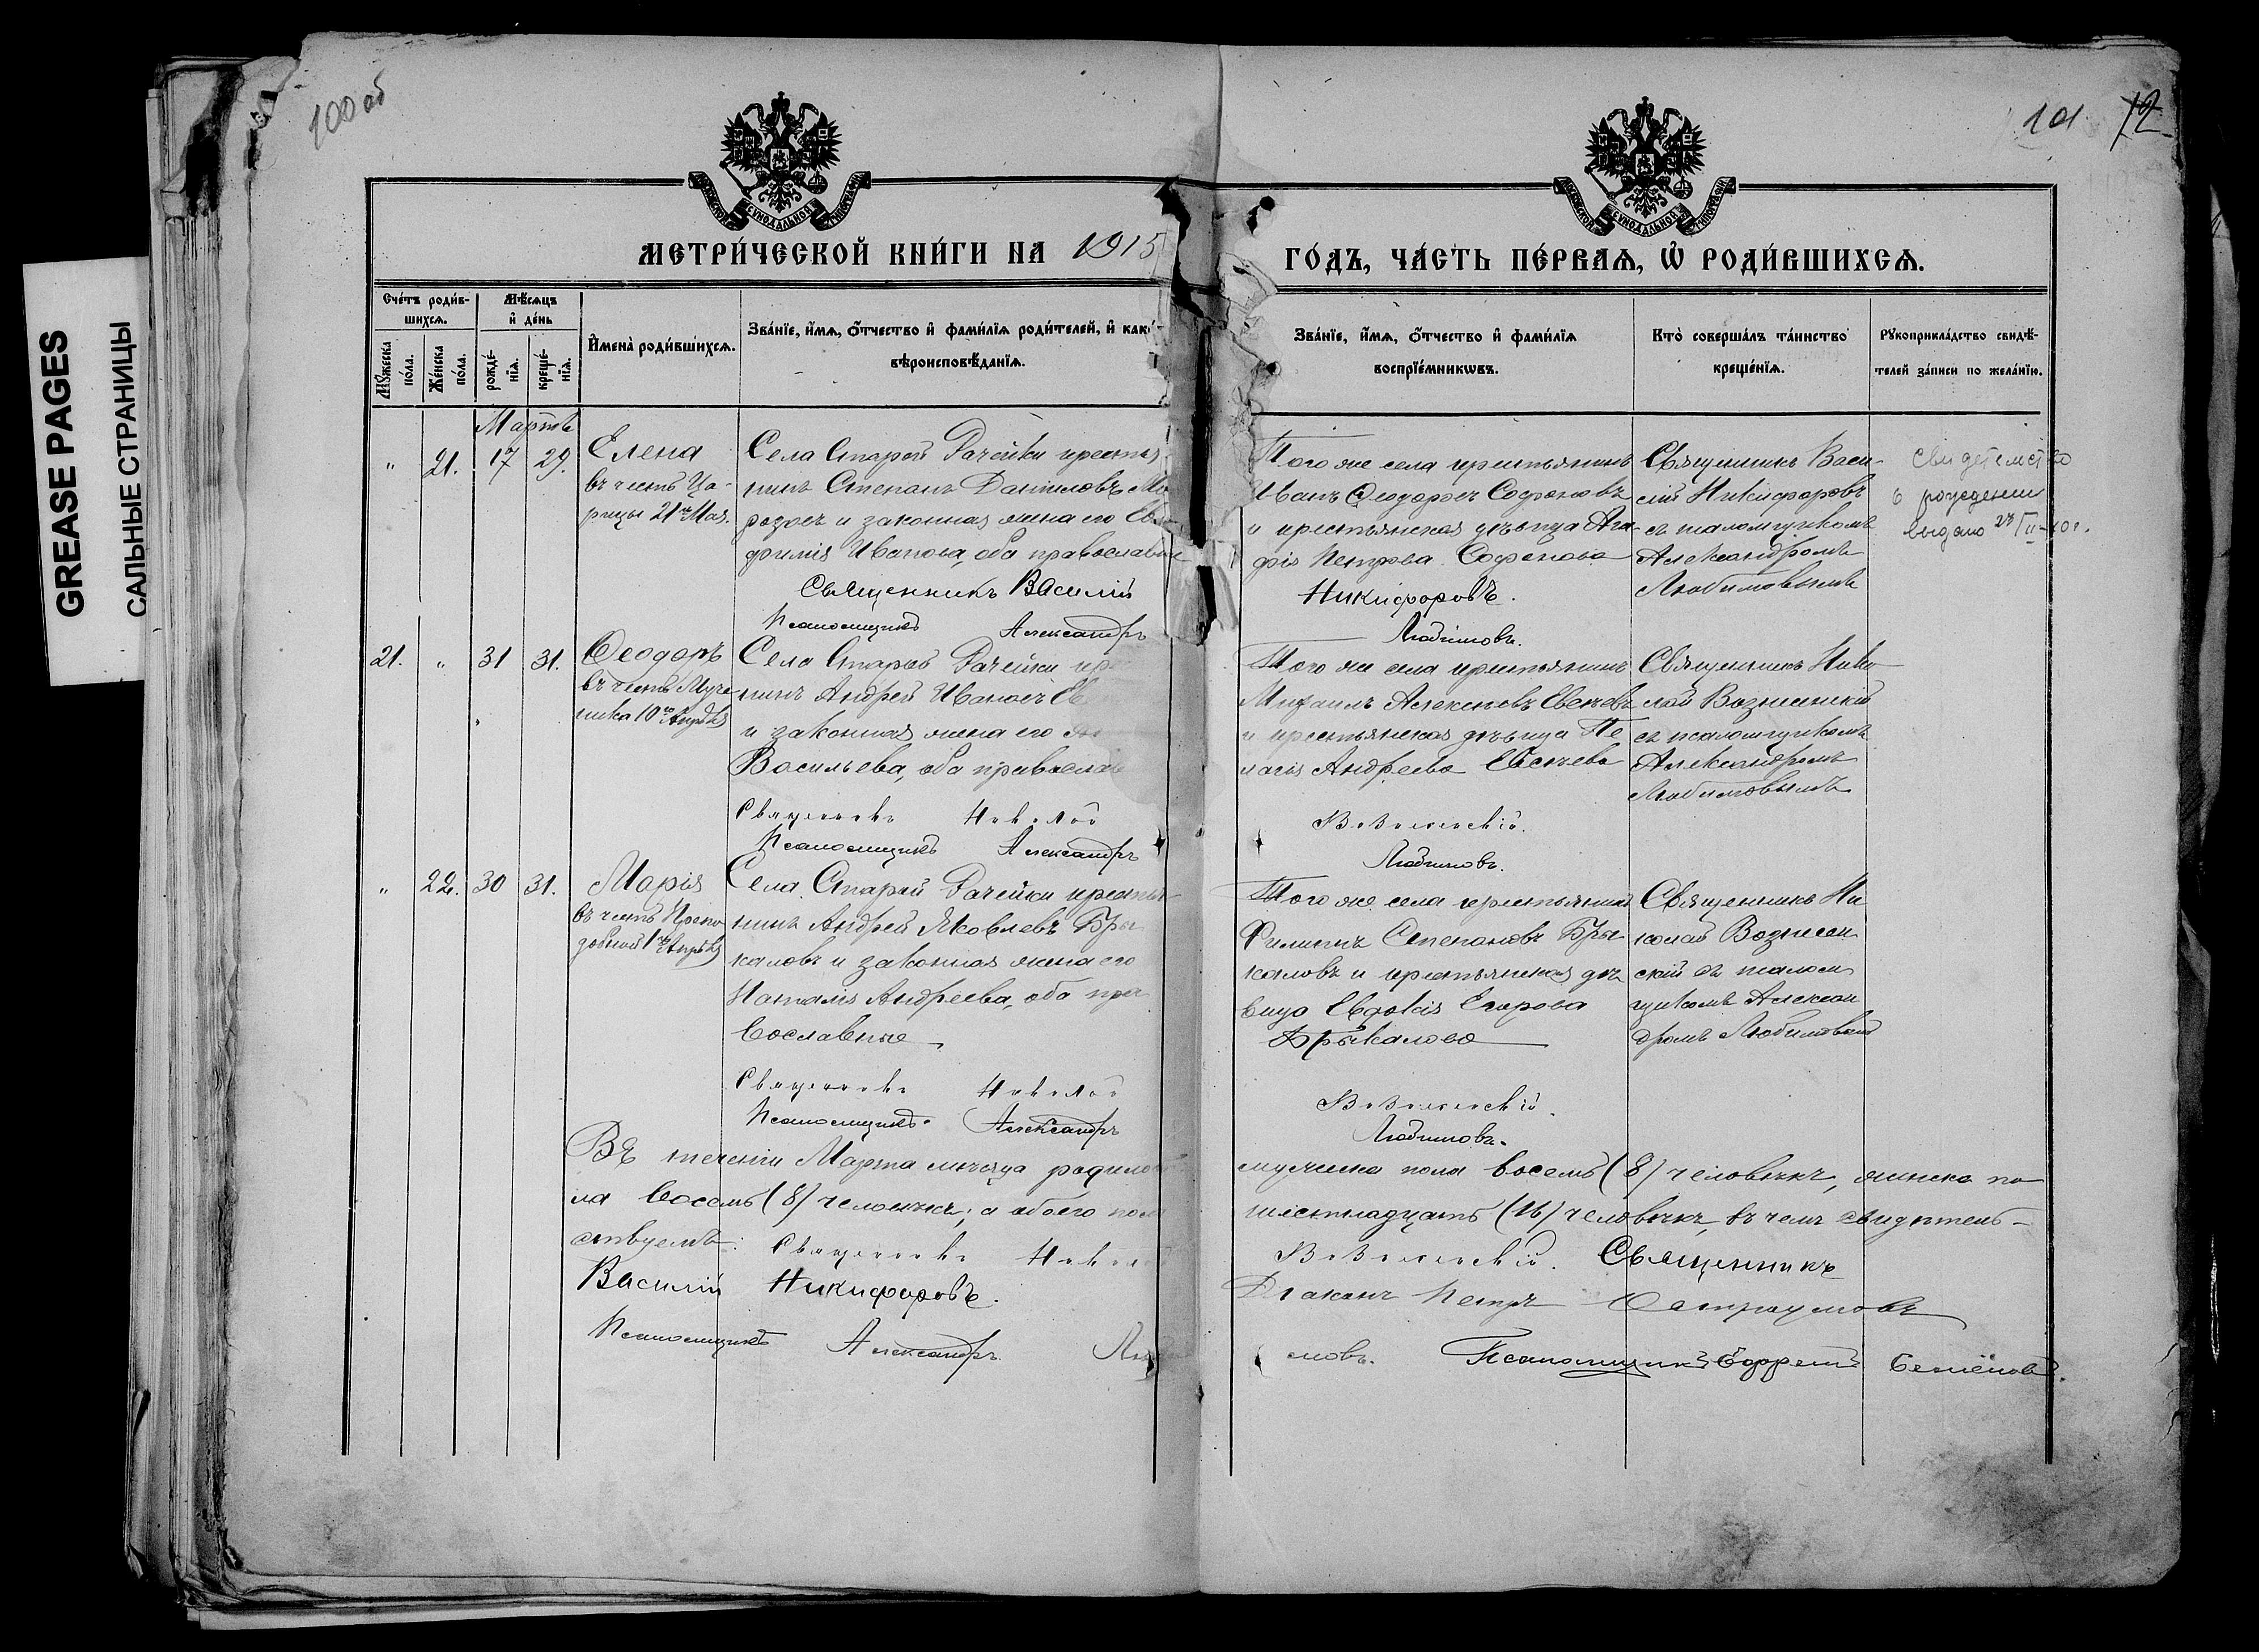 GREASE PAGES
САЛЬНЫЕ СТРАНИЦЫ
100 об
101 12
МОСКОВСКОЙ СѴНОДАЛЬНОЙ ТИПОГРАФІИ
МОСКОВСКОЙ СѴНОДАЛЬНОЙ ТИПОГРАФІИ
МЕТРИ́ЧЕСКОЙ КНИ́ГИ НА 1915
ГО́ДЪ, ЧА́СТЬ ПЕ́РВАѦ, Ѡ҆ РОДИ́ВШИХСѦ.
Сче́тъ роди́в-
шихсѧ.
Мѣ́сѧцъ
и҆ де́нь
Мꙋ́жеска по́ла.
Же́нска по́ла.
рожде́-нїѧ.
креще́-нїѧ.
И҆мена̀ роди́вшихсѧ.
Зва́нїе, и҆́мѧ, ѻ҆́тчество и҆ фами́лїѧ роди́телей, и҆ како́-
вѣроисповѣ́данїѧ.
Зва́нїе, и҆́мѧ, ѻ҆́тчество и҆ фами́лїѧ
воспрїе́мникѡвъ.
Кто̀ соверша́лъ та́инство
креще́нїѧ.
Рꙋкоприкла́дство свидѣ́-
телей за́писи по жела́нїю.
Мартъ
" 21. 17 29.
Елена
въ честь Ца-
рицы 21го Мая.
Села Старой Рачейки крестья
нинъ Степанъ Даниловъ Мо
розовъ и законная жена его Ев
фимія Иванова, оба православные
Священникъ Василій
Псаломщикъ Александръ
Того же села крестьянинъ
Иванъ Ѳеодоровъ Софоновъ
и крестьянская дѣвица Ага-
фія Петрова Софонова
Никифоровъ.
Любимовъ.
Священникъ Васи-
лій Никифоровъ
съ псаломщикомъ
Александромъ
Любимовымъ
Свидетельство
о рождении
выдано
21. " 31 31.
Ѳеодоръ
въ честь Муче
ника 10го Апрѣля
Села Старой Рачейки кре
нинъ Андрей Ивановъ Ев
и законная жена его
Васильева, оба православ
Священникъ Николай
Псаломщикъ Александръ
Того же села крестьянинъ
Михаилъ Алексѣевъ Евсѣевъ
и крестьянская дѣвица Пе
лагія Андреева Евсѣева
Вознесенскій.
Любимовъ.
Священникъ Нико
лай Вознесенскій
съ псаломщикомъ
Александромъ
Любимовымъ
" 22. 30 31.
Марія
въ честь Препо
добной 1го Апрѣля
Села Старой Рачейки крестья-
нинъ Андрей Яковлевъ Бры
каловъ и законная жена его
Наталія Андреева, оба пра
вославные
Священникъ Николай
Псаломщикъ Александръ
Того же села крестьянинъ
Филиппъ Степановъ Бры
каловъ и крестьянская дѣ
вица Евдокія Егорова
Брыкалова
Вознесенскій.
Любимовъ.
Священникъ Ни
колай Вознесен
скій съ псалом
щикомъ Алексан
дромъ Любимовымъ
Въ теченіи Марта мѣсяца родилось
мужеска пола восемь (8) человѣкъ, женска по
ла восемь (8) человѣкъ; а обоего пола
шестнадцать (16) человѣкъ, въ чемъ свидѣтель-
ствуемъ: Священникъ Николай
Вознесенскій. Священникъ
Василій Никифоровъ.
Діаконъ Петръ Остроумовъ
Псаломщикъ Александръ Лю
мовъ. Псаломщикъ Ефремъ Семёновъ.